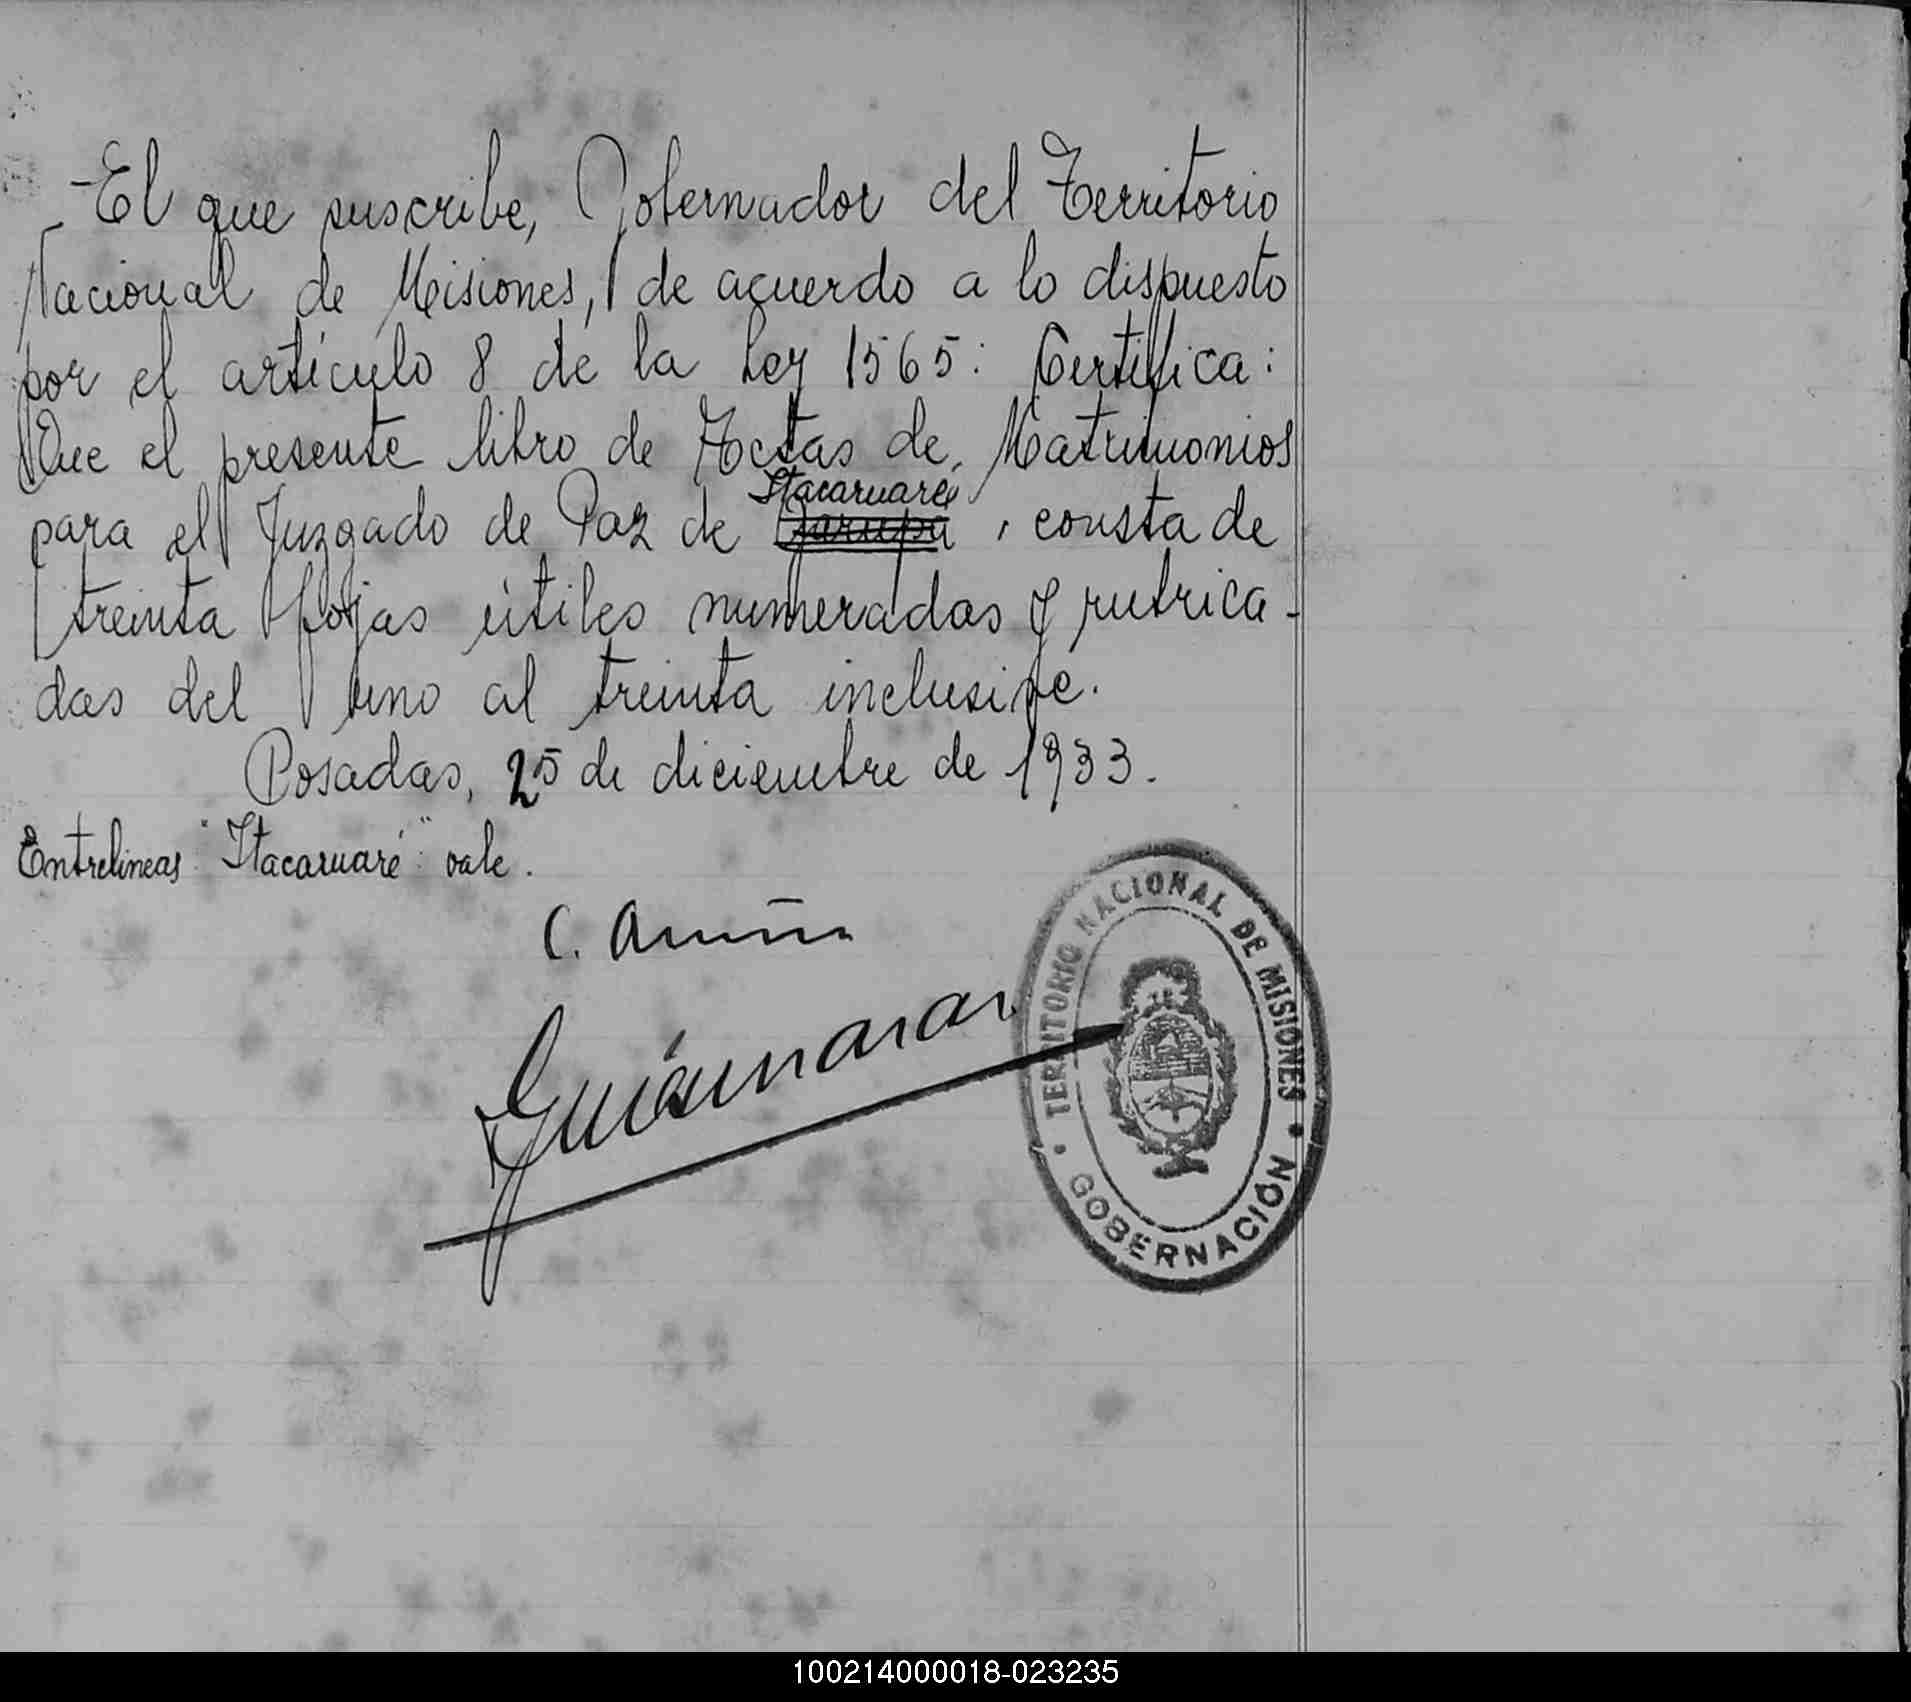 -El que suscribe, Gobernador del Territorio
Nacional de Misiones, de acuerdo a lo dispuesto
por el artículo 8 de la Ley 1565: Certifica:
Que el presente libro de Actas de Matrimonios
Itacaruaré
para el Juzgado de Paz de Garupá, consta de
treinta fojas útiles numeradas y rubrica-
das del uno al treinta inclusive.
Posadas, 25 de diciembre de 1933.
Entrelineas "Itacaruaré" vale.
C. Acuña
TERRITORIO NACIONAL DE MISIONES
GOBERNACIÓN
100214000018-023235